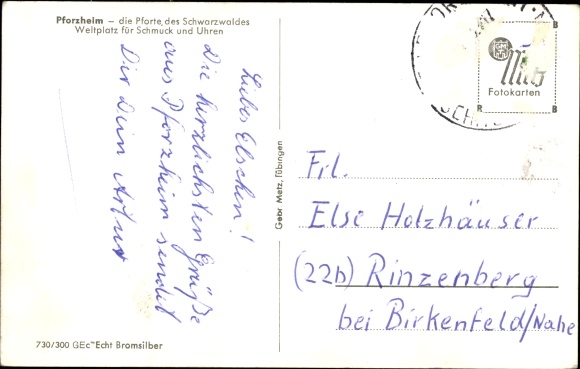 Pforzheim — die Pforte des Schwarzwaldes
Weltplatz für Schmuck und Uhren
Liebes Elschen!
Die herzlichsten Grüße
aus Pforzheim sendet
Dir Dein Artur
730/300 GEc Echt Bromsilber
Gebr Metz, Tübingen
Metz
Fotokarten
B
B
R
B
Frl.
Else Holzhäuser
(22b) Rinzenberg
bei Birkenfeld/Nahe